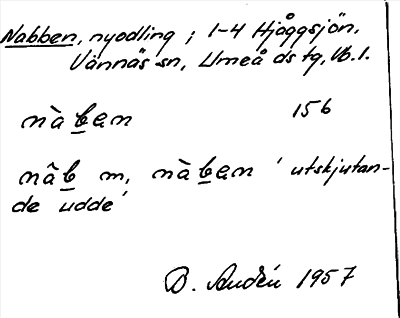 Nabben, nyodling ; 1-4 Hjåggsjön,
Vännäs sn, Umeå ds tg, Vb. l.
nàben 156
nâb m, nàben ' utskjutan-
de udde'
B. Audén 1957